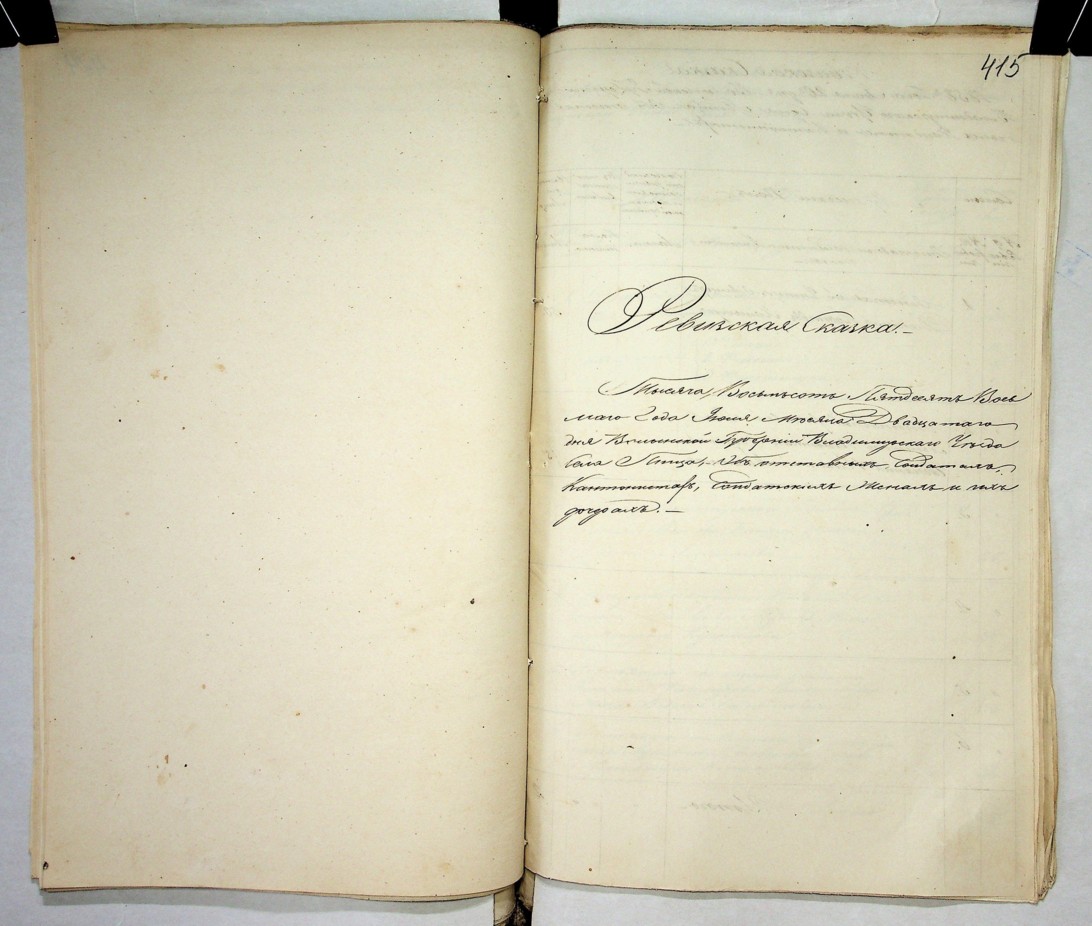 415
Ревизская Сказка.
Тысяча Восьмьсотъ Пятдесятъ Вось
маго Года Июня Месяца Двадцатаго
дня Волынской Губернiи Владимирскаго Уезда
Села объ отставныхъ Солдатахъ,
Кантонистахъ, Солдатскихъ Женахъ и ихъ
дочеряхъ.